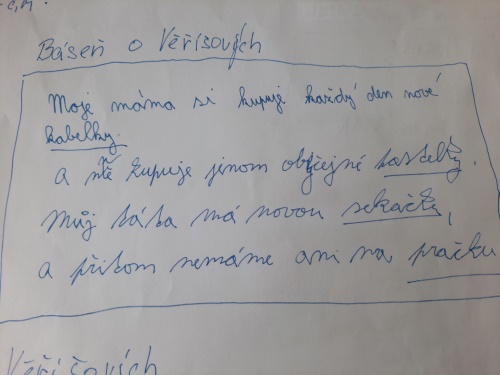 Báseň o Věříšových
Moje máma si kupuje každý den nové
kabelky.
a mě kupuje jenom obyčejné pastelky.
Můj táta má novou sekačku,
a přitom nemáme ani na pračku
Věříšových